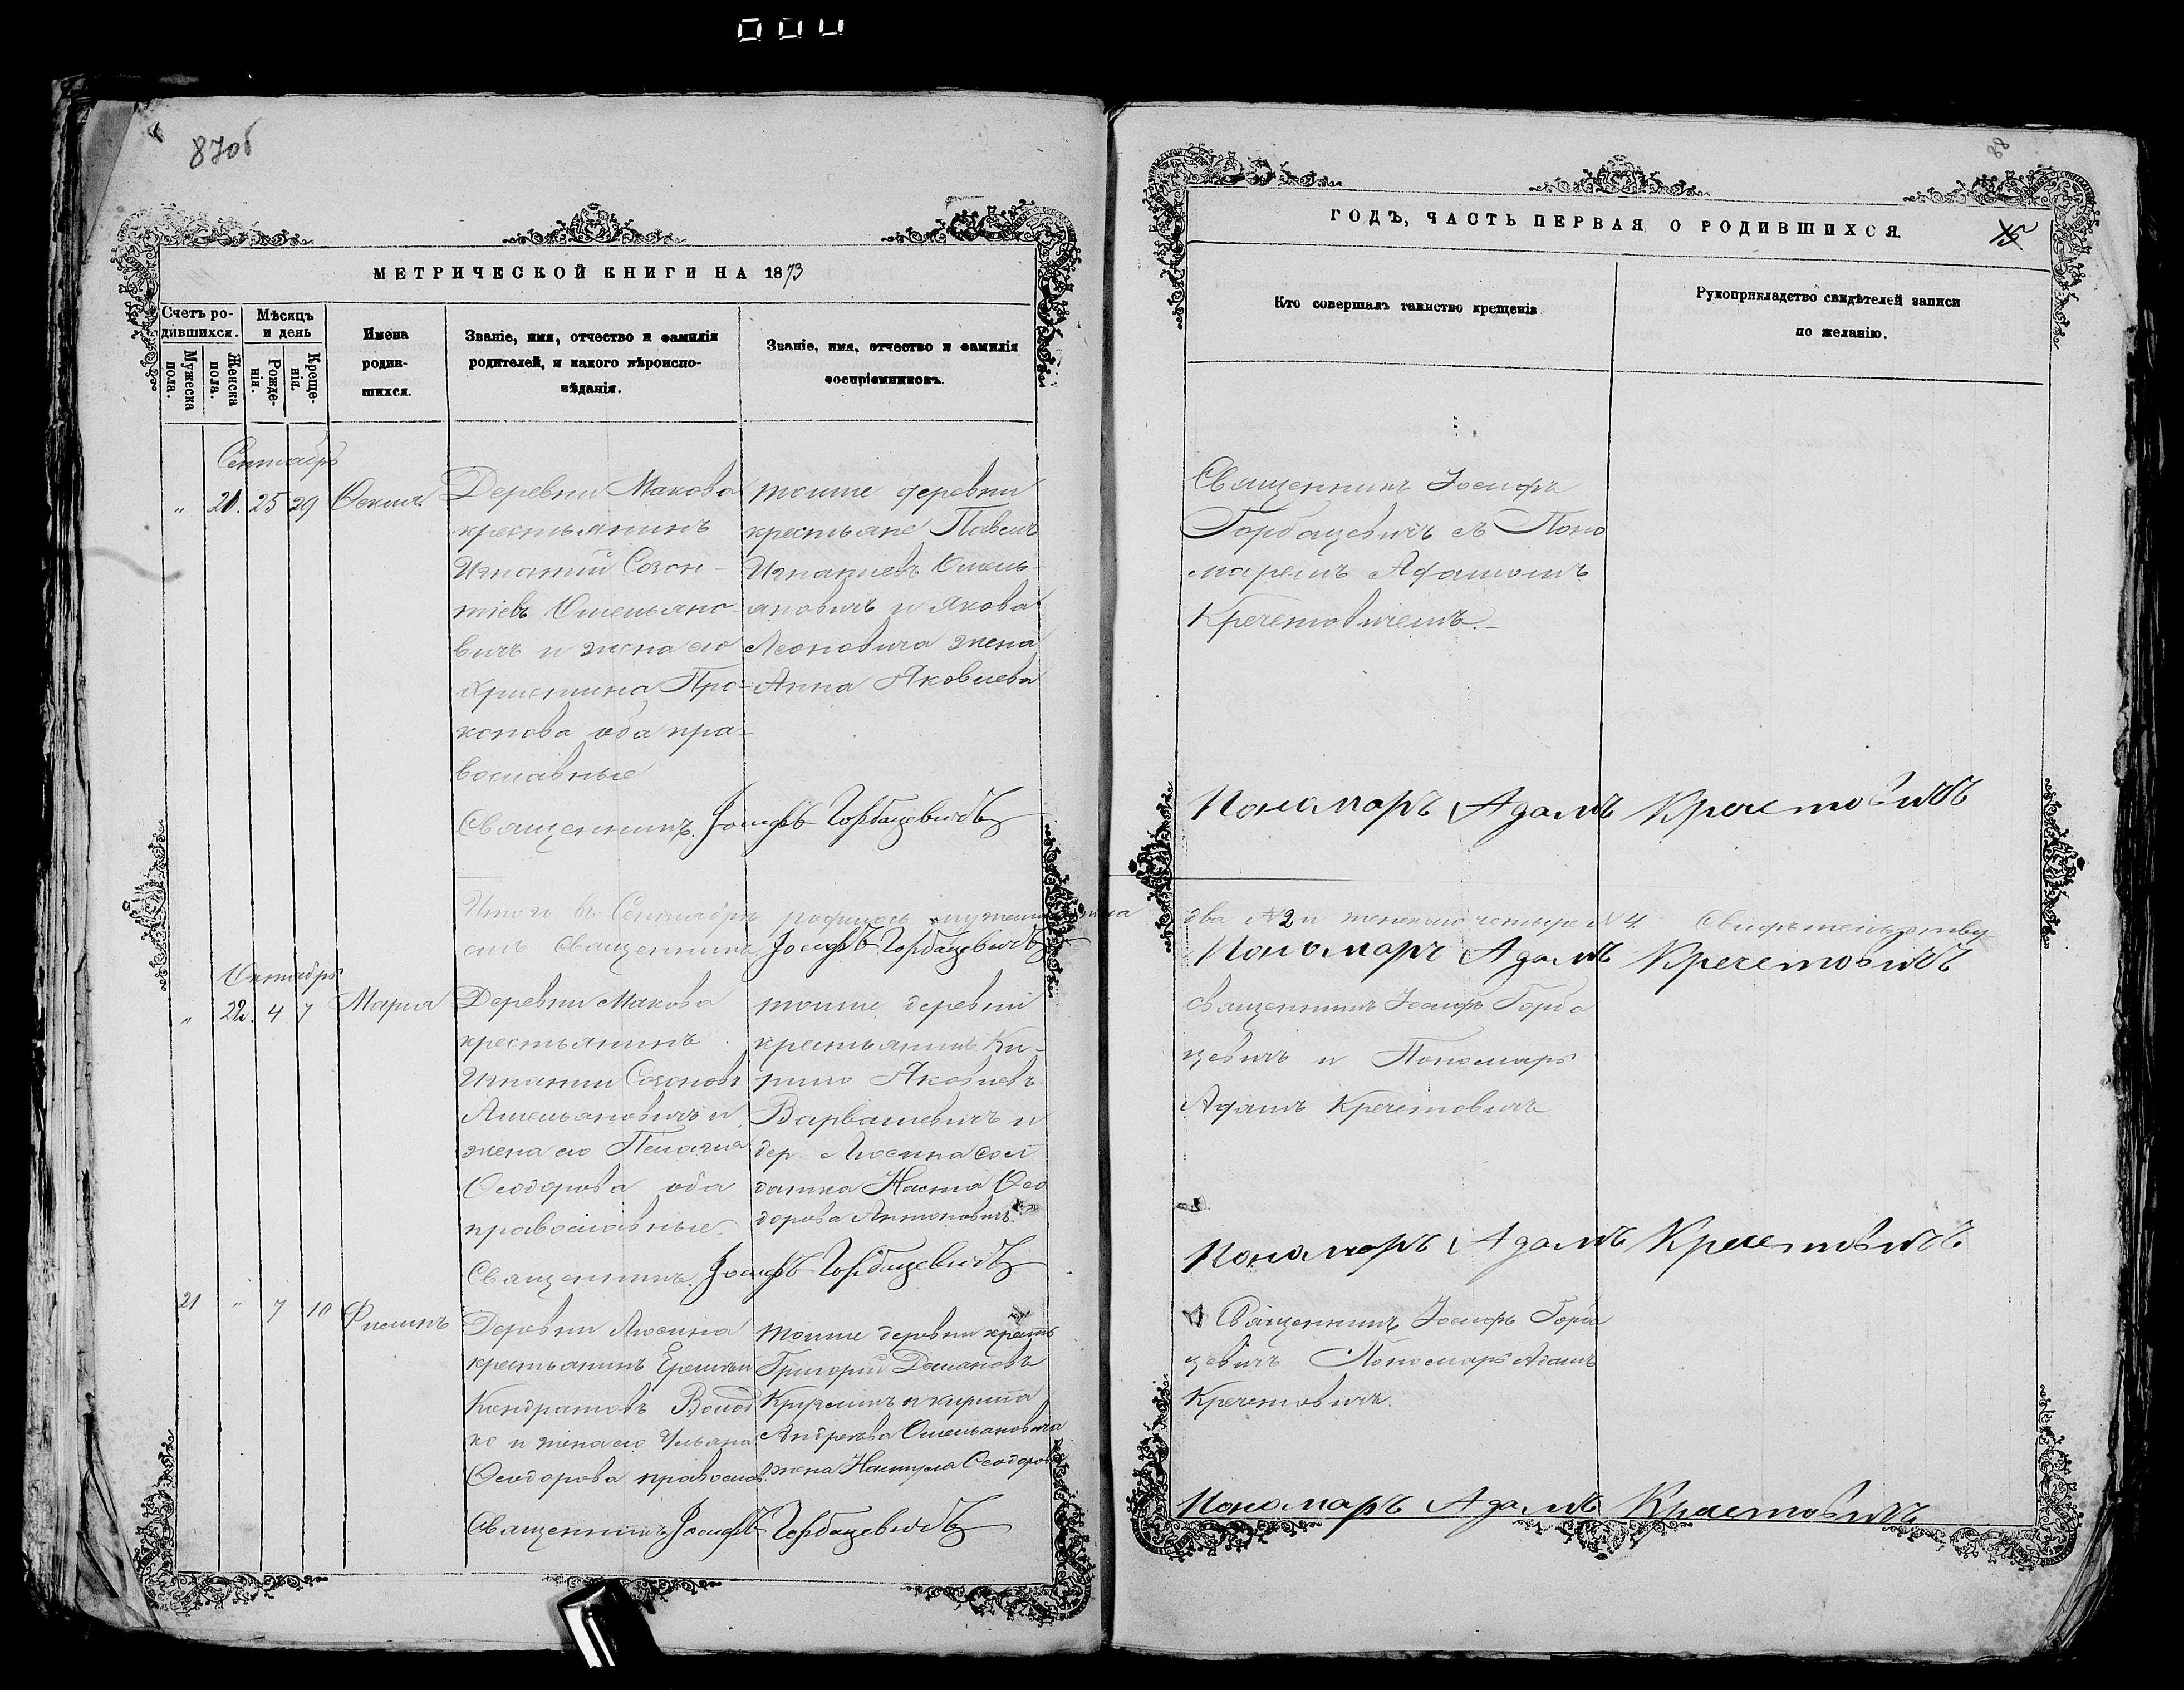 87об
88
МЕТРИЧЕСКОЙ КНИГИ НА 1873
Счетъ ро-
дившихся.
Мужеска
пола.
Женска
пола.
Мѣсяцъ
и день
Рожде-
нія.
Креще-
нія.
Имена
родив-
шихся.
Званіе, имя, отчество и фамилія
родителей, и какого вѣроиспо-
вѣданія.
Званіе, имя, отчество и фамилія
воспріемниковъ.
Сентябрь
„ 21. 25 29
Деревни Макова
крестьянинъ
Игнатій Созон-
тіевъ Омельяно-
вичъ и жена его
Христина Про-
копова оба пра-
вославные
тойже деревни
крестьяне Павелъ
Игнатіевъ Омель-
яновичъ и Якова
Леоновича жена
Анна Яковлева
Священникъ Іосифъ Горбацевичъ
Итого въ Сентябрѣ родилось мужеска пола
Священникъ Іосифъ Горбацевичъ
Октябрь
„ 22. 4 7 Марія
Деревни Макова
крестьянинъ
Игнатій Созоновъ
Амельяновичъ и
жена его Пелагія
Ѳеодорова оба
православные
тойже деревни
крестьянинъ Ки-
рило Яковлевъ
Варвашевичъ и
дер. Люсина сол
датка Настя Ѳео
дорова Антоновичъ
Священникъ Іосифъ Горбацевичъ
21 „ 7 10 Филипъ
Деревни Люсина
крестьянинъ Еремѣй
Кондратовъ Волод
ко и жена его Ульяна
Ѳеодорова правосл.
тойже деревни крест.
Григорій Демановъ
Андреева Омельяновича
жена Настула Ѳеодорова
Священникъ Іосифъ Горбацевичъ
ГОДЪ, ЧАСТЬ ПЕРВАЯ О РОДИВШИХСЯ
Кто совершалъ таинство крещенія
Рукоприкладство свидѣтелей записи
по желанію.
Священникъ Іосифъ
Горбацевичъ съ Поно
маремъ Адамомъ
Кречетовичемъ.
Пономарь Адамъ Кречетовичъ
два №2 и женскаго четыре №4.
Пономарь Адамъ Кречетовичъ
Священникъ Іосифъ Горба
цевичъ и Пономарь
Адамъ Кречетовичъ
Пономарь Адамъ Кречетовичъ
Священникъ Іосифъ Горба
цевичъ Пономарь Адамъ
Кречетовичъ.
Пономарь Адамъ Кречетовичъ